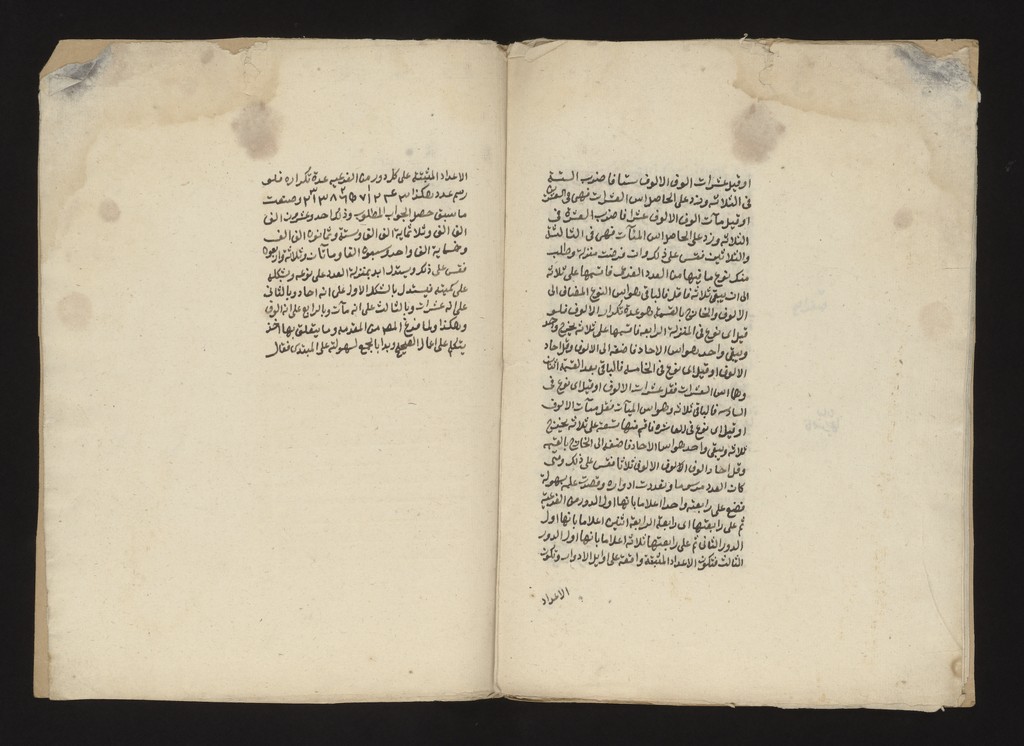 او قيل عشرات الوف الالوف ستا فاضرب الستة
في الثلاثة وزد على الحاصل اس العشرات فهى في العشرين
او قيل مآت الوف الالوف عشرا فاضرب العشرة في
الثلاثة وزد على الحاصل اس المئآت فهى في الثالثة
والثلاثين فقس على ذلك وان فرضت منزلة وطلب
منك نوع ما فيها من العدد الفندى فاقسمها على ثلاثة
الى ان يبقى ثلاثة فاقل فالباقي هو اس النوع المضاف الى
الالوف والخارج بالقسمة هو عدة تكرار الالوف فلو
قيل اى نوع في المنزلة الرابعة فاقسمها على ثلاثة يخرج واحد
ويبقى واحد هو اس الاحاد فاضفه الى الالوف وقل احاد
الالوف او قيل اى نوع في الخامسة فالباقي بعد القسمة اثنان
وهما اس العشرات فقل عشرات الالوف او قيل اى نوع في
السادسة فالباقي ثلاثة وهو اس المئآت فقل مئآت الالوف
او قيل اى نوع في العاشرة فاقسم منها تسعة على ثلاثة يخرج
ثلاثة ويبقى واحد هو اس الاحاد فاضفه الى الخارج بالقسمة
وقل احاد الوف الالوف الالوف ثلاثا فقس على ذلك ومتى
كان العدد مرسوما وتعددت ادواره وقصدت علمه بسهولة
فضع على رابعته واحدا اعلاما بانها اول الدور من الفرعية
ثم على رابعتها اى رابعة الرابعة اثنين اعلاما بانها اول
الدور الثاني ثم على رابعتها ثلاثة اعلاما بانها اول الدور
الثالث فتكون الاعداد المثبتة واقعة على اوايل الادوار وتكون
الاعداد
الاعداد المثبتة على كل دور من الفرعية عدة تكراره فلو
رسم عدد هكذا ٢١٣٨٦٥٧١٢٤٣ وصنعت
ما سبق حصل الجواب المطلوب وذلك احد وعشرون الف
الف الف وثلاثماية الف الف وستة وثمانون الف الف
وخمسماية الف واحد وسبعون الفا ومائتان وثلاثة واربعون
فقس على ذلك ويستدل ابدا بمنزلة العدد على نوعه وشكله
على كميته فيستدل بالشكل الاول على انه احاد وبالثاني
على انه عشرات وبالثالث على انه مآت وبالرابع على انه الوف
وهكذا ولما فرغ المص من المقدمة وما يتعلق بها اخذ
يتكلم على اعمال الصحيح وبدا بالجمع لسهولته على المبتدى فقال